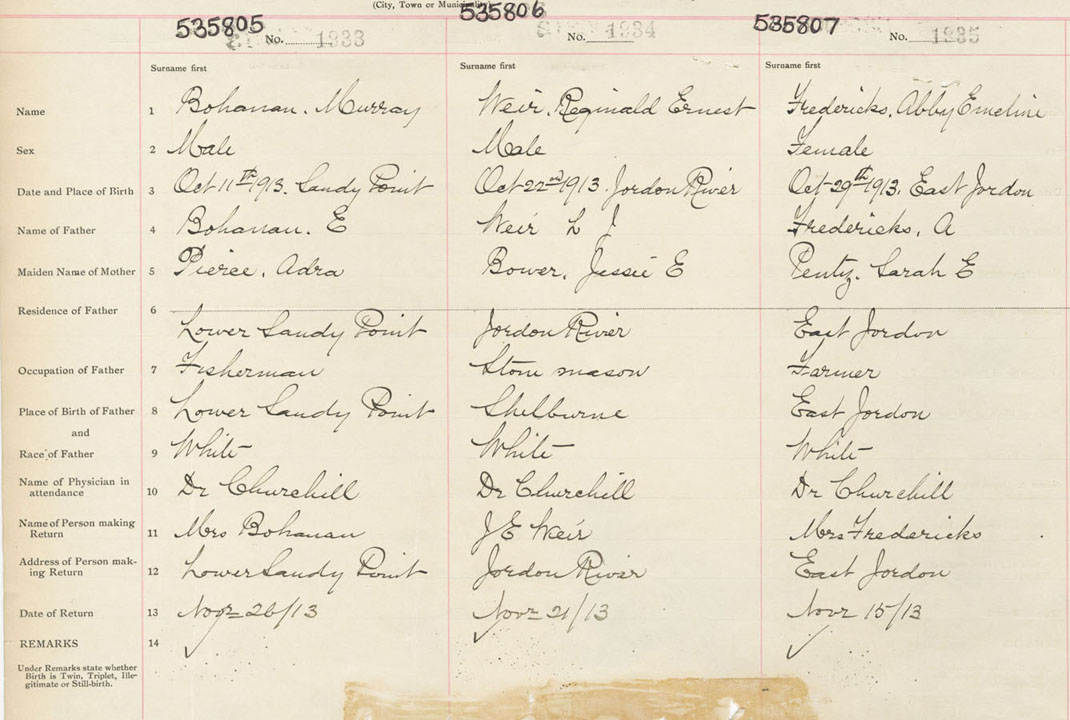 (City, Town or Municipality)
535805 No. 1933 535806 No. 1934 535807 No. 1935
Surname first Surname first Surname first
Name 1 Bohanan. Murray Weir, Reginald Ernest Fredericks, Abby Emeline
Sex 2 Male Male Female
Date and Place of Birth 3 Oct 11th 1913. Sandy Point Oct 22nd 1913. Jordon River Oct 29th 1913. East Jordon
Name of Father 4 Bohanan. E Weir L J Fredericks, A
Maiden Name of Mother 5 Pierce, Adra Bower, Jessie E Penty. Sarah E
Residence of Father 6 Lower Sandy Point Jordon River East Jordon
Occupation of Father 7 Fisherman Stone mason Farmer
Place of Birth of Father 8 Lower Sandy Point Shelburne East Jordon
and
Race of Father 9 White White White
Name of Physician in
attendance 10 Dr Churchill Dr Churchill Dr Churchill
Name of Person making
Return 11 Mrs Bohanan J E Weir Mrs Fredericks
Address of Person mak-
ing Return 12 Lower Sandy Point Jordon River East Jordon
Date of Return 13 Novr 26/13 Novr 21/13 Novr 15/13
REMARKS 14
Under Remarks state whether
Birth is Twin, Triplet, Ille-
gitimate or Still-birth.